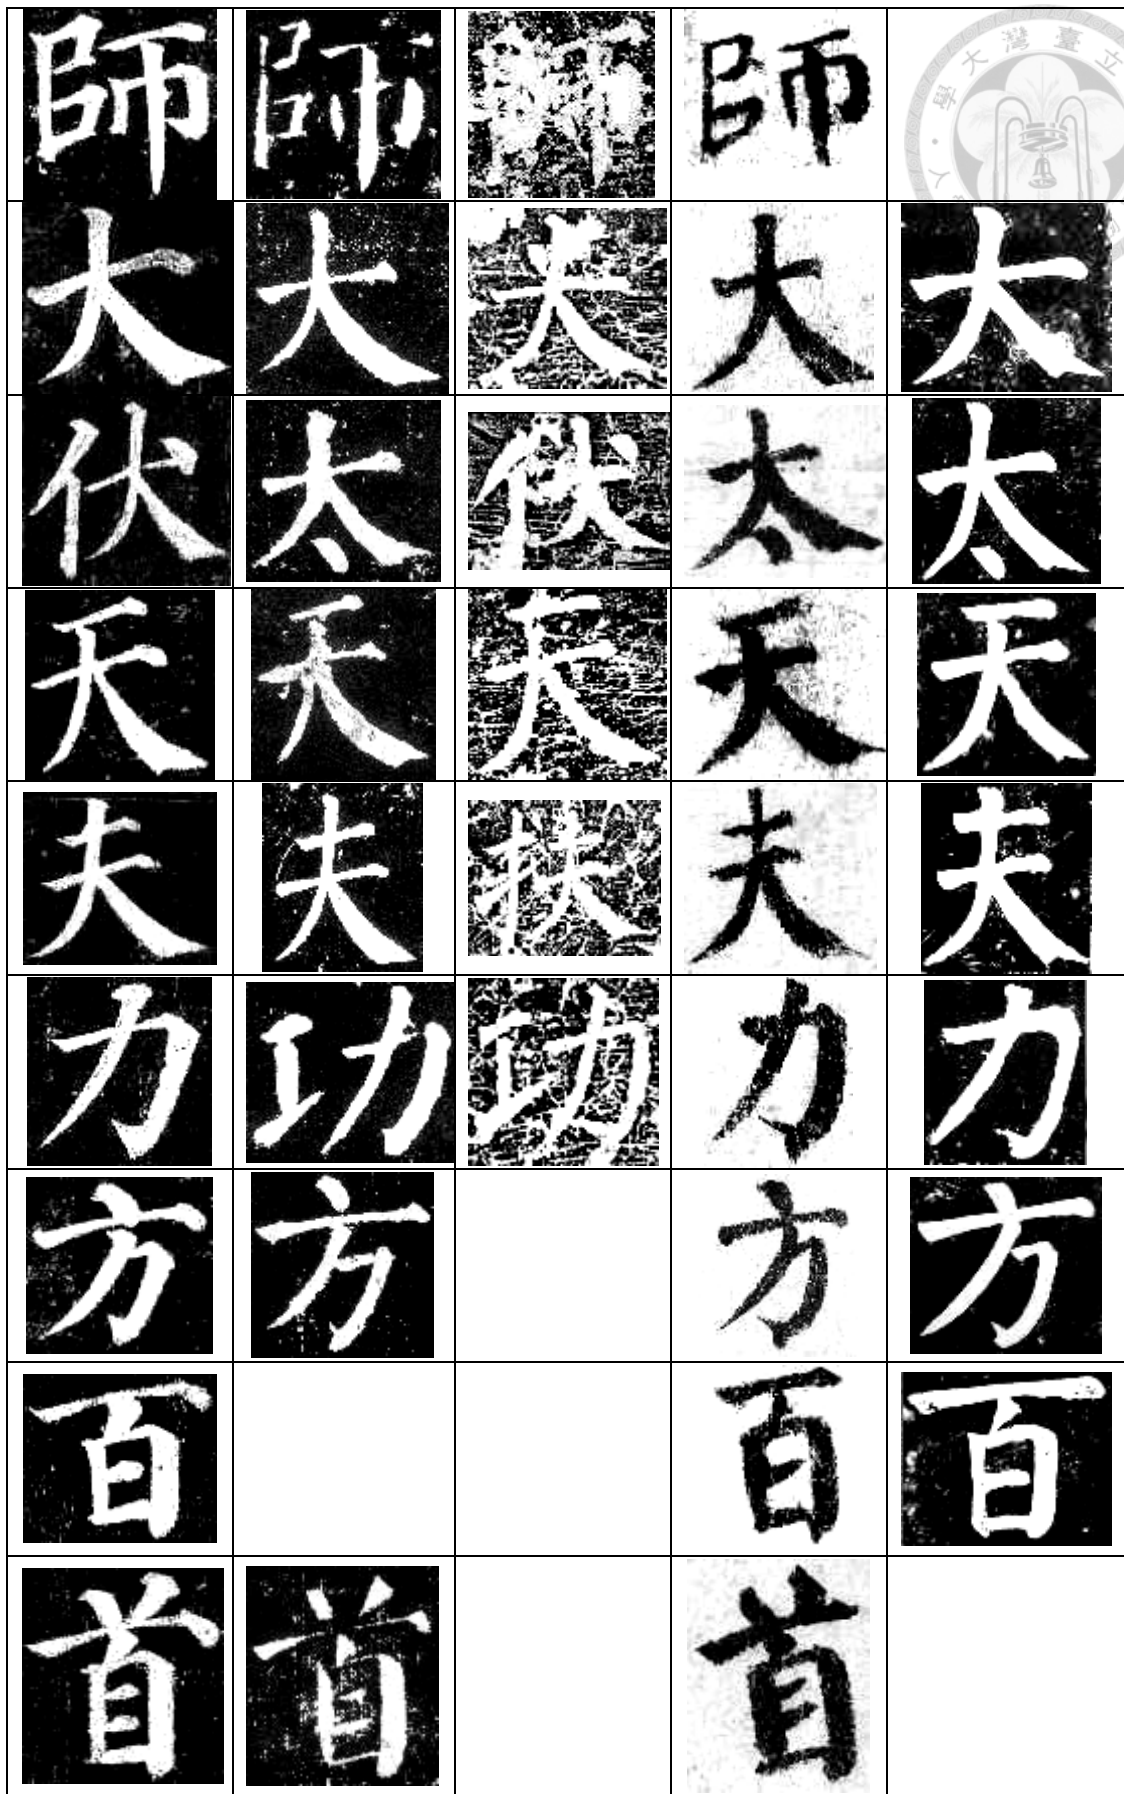 師 師 師 師
大 大 大 大 大
伏 太 伏 太 太
天 天 天 天 天
夫 夫 扶 夫 夫
力 功 功 力 力
方 方 方 方
百 百 百
首 首 首